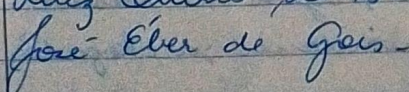 José Éber de Gois-